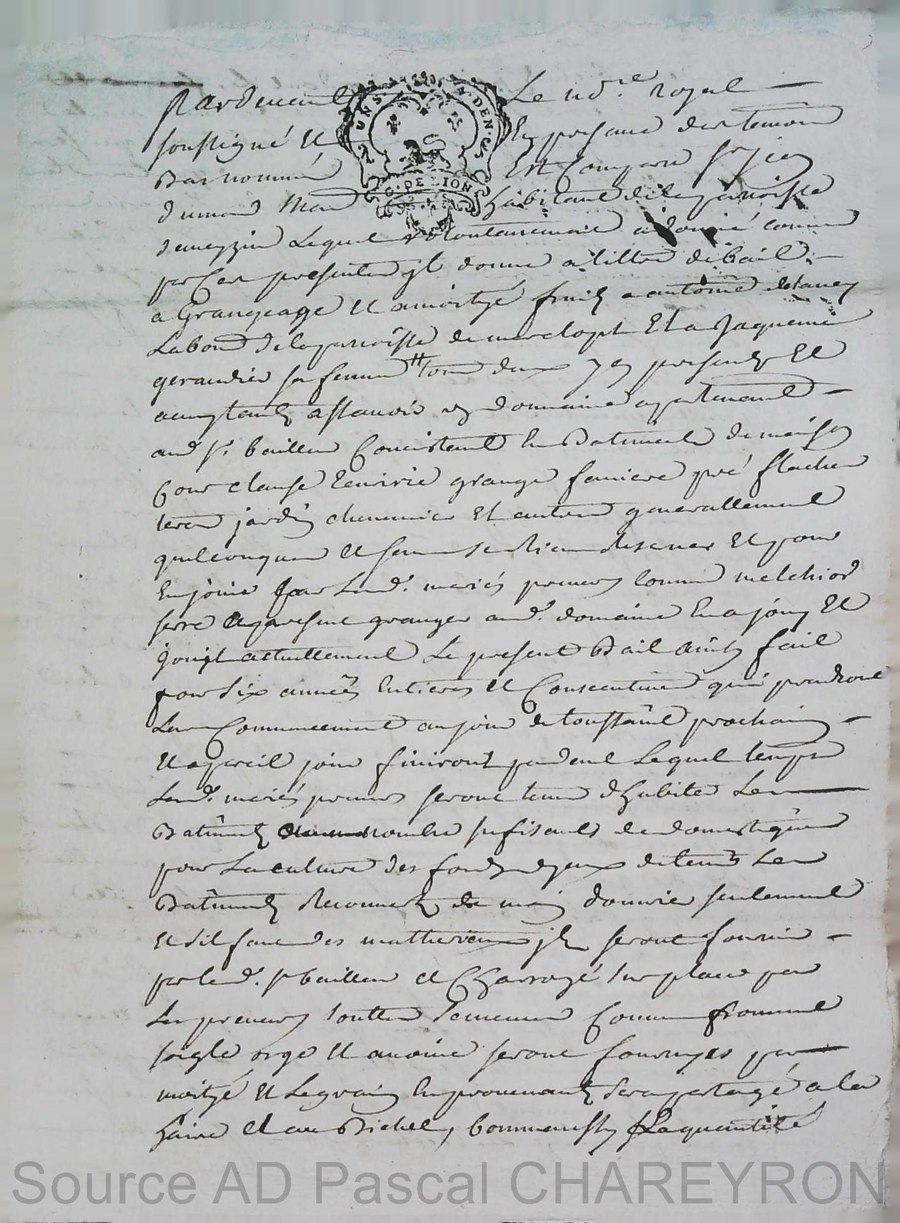 Pardevant Le no.re royal
soussigné et En presance des temoins
Bas nommés Est Comparu sr Jean
dumond mar habitant de la paroisse
demeyzin Lequel volontairement a donné comme
par Ces presentes jl donne a tittre de bail
a Grangeage et amoityé fruits a antoine
Laboureur de la paroisse de marclopt Et a Jaqueme
gerandier sa femme tous deux jcy presents Et
acceptants assavoir un domaine apartenant
aud. sr. bailleur Consistant En Batiments de maison
Cour clause Ecuirie grange faniere pré flachere
terre jardin chenevier Et autres generallement
quelconques et sans se Rien Reserver Et pour
En jouir par Lesd. mariés preneurs comme melchiord
serre apresent granger aud. domaine En a jouy Et
jouit actuellement Le present Bail ainsy fait
pour six années Entieres et Consecutives qui prendront
Leur Commancement au jour de toussaint prochain
Et apareil jour finiront pendant Lequel temps
Lesd. mariés preneurs seront tenus d'habiter Les
Batiments nombre sufisants de domestiques
pour La culture des fonds d'yceux detenir Les
Batiments Recouverts de main d'ouvrier seulement
Et s'il faut des matherieaux jls seront fournis
par led. sr bailleur et Charroyé sur place par
Les preneurs touttes semences Comme froment
seigle orge Et avoine seront fournyes par
moityé Et Le grain En provenant sera partagé a la
haire Et au Bichet, La quantité
G. DE LION
Source AD Pascal CHAREYRON